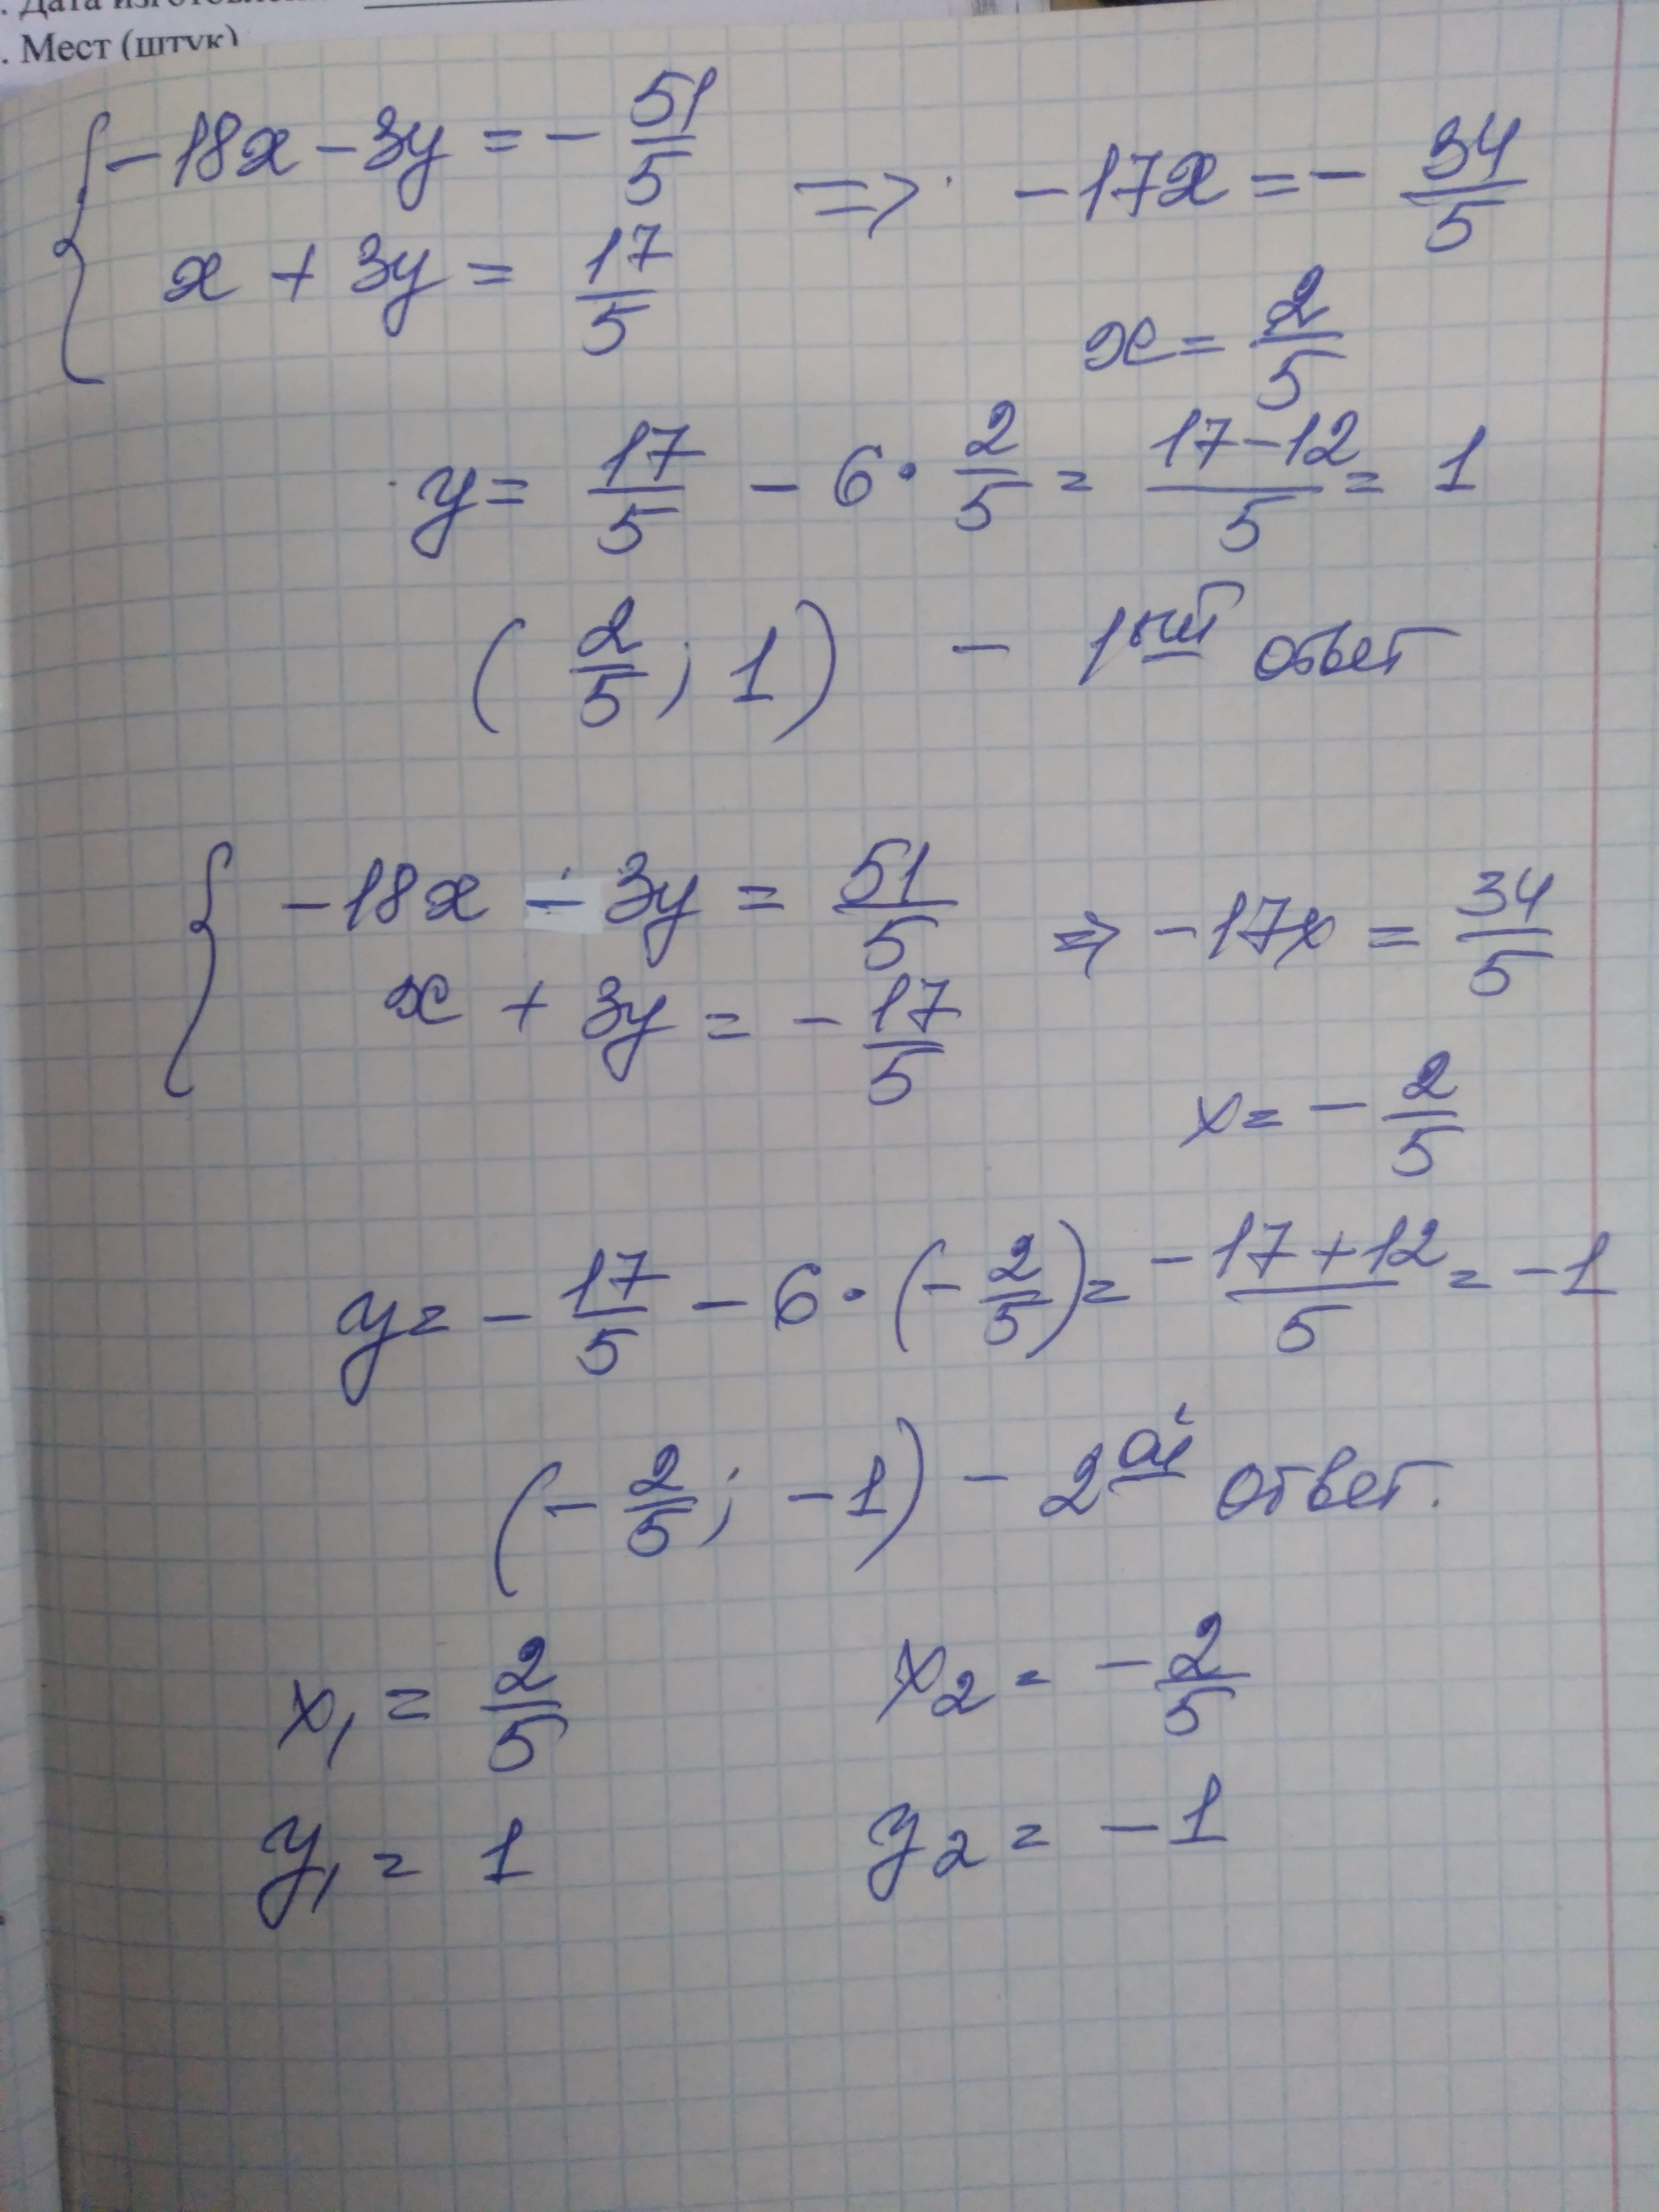 . Дата
. Мест (штук)
{ -18x - 3y = - 51/5
x + 3y = 17/5
=> -17x = - 34/5
x = 2/5
y = 17/5 - 6 · 2/5 = (17-12)/5 = 1
(2/5; 1) - 1ый ответ
{ -18x - 3y = 51/5
x + 3y = - 17/5
=> -17x = 34/5
x = - 2/5
y = - 17/5 - 6 · (- 2/5) = (-17+12)/5 = -1
(- 2/5; -1) - 2ой ответ.
x₁ = 2/5 x₂ = - 2/5
y₁ = 1 y₂ = -1